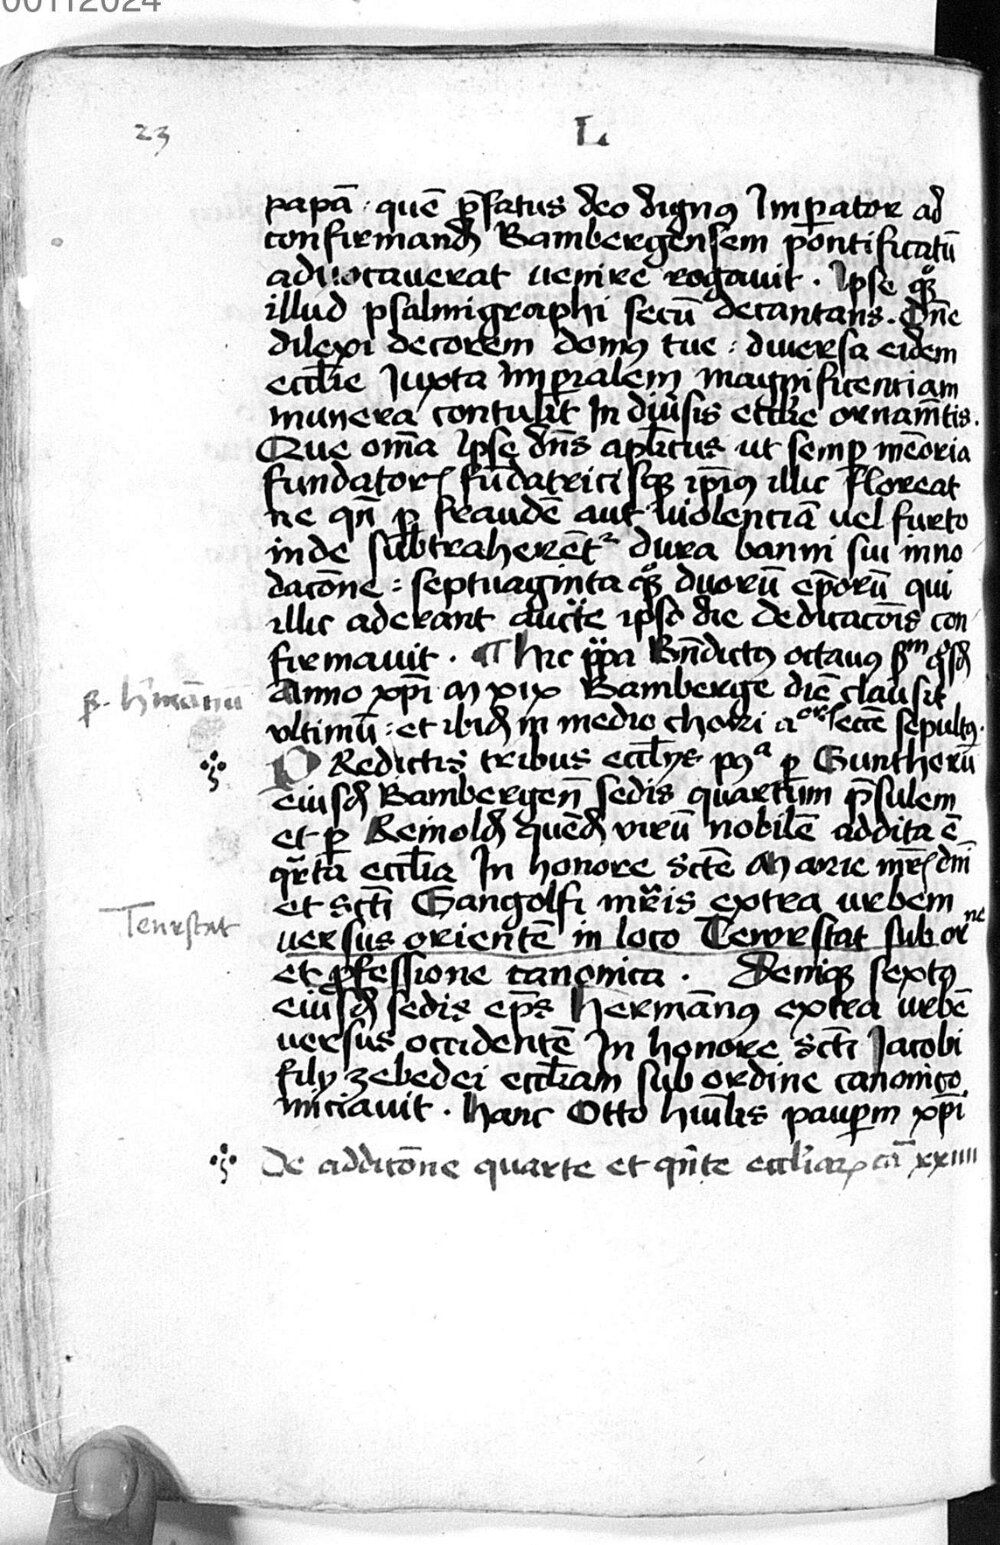 00112024
23
L
papā : quē p̄fatus deo dignꝰ Imperator ad
confirmandū Bambergensem pontificatū
aduocauerat uenire rogauit . Ipse qꝫ
illud psalmigraphi secū decantans . Dn̄e
dilexi decorem domꝰ tue : diuersa eidem
eccl̄ie Iuxta imp̄ialem magnificentiam
munera contulit In diūsis eccl̄ie ornam̄tis .
Que om̄a ipse dn̄s ap̄licus ut semp̄ mēoria
fundatorꝝ fūdatricisqꝫ ip̄iꝰ illic floreat
ne qn̄ ꝑ fraudē aut uiolentiā uel furto
inde subtraherēt᷑ dura banni sui inno
dacōne : septuaginta qꝫ duorū ep̄orū qui
illic aderant auctē ipso die dedicacōis con
firmauit . ¶ Hic pp̄a Bn̄dictꝰ octauꝰ ẜm qͦsdā
Anno xp̄i M xix Bamberge diē clausit
ꝓ. h̓mānū
vltimū : et ibidē in medio chori eccē sepultꝰ .
PRedictis tribus eccl̄ijs pꝰᵃ ꝑ Guntherū
eiusdē Bambergen̄ sedis quartum p̄sulem
et ꝑ Reinoldū quēdā virū nobilē addita ē
qr̄ta eccl̄ia In honore sctē Marie mr̄is dn̄i
et sctī Gangolfi mr̄is extra urbem
Teurstat
uersus orientē in loco Tewrstat sub orⁿᵉ
et ꝓfessione canonica . Deniqꝫ sextꝰ
eiusdē sedis ep̄s Hermānꝰ extra urbē
uersus occidentē In honore sctī Jacobi
filij zebedei eccl̄iam sub ordine canonico
iniciauit . Hanc Otto huīlis pauꝑum xp̄i
De additōne quarte et qn̄te eccl̄iaꝝ cā xxiiii